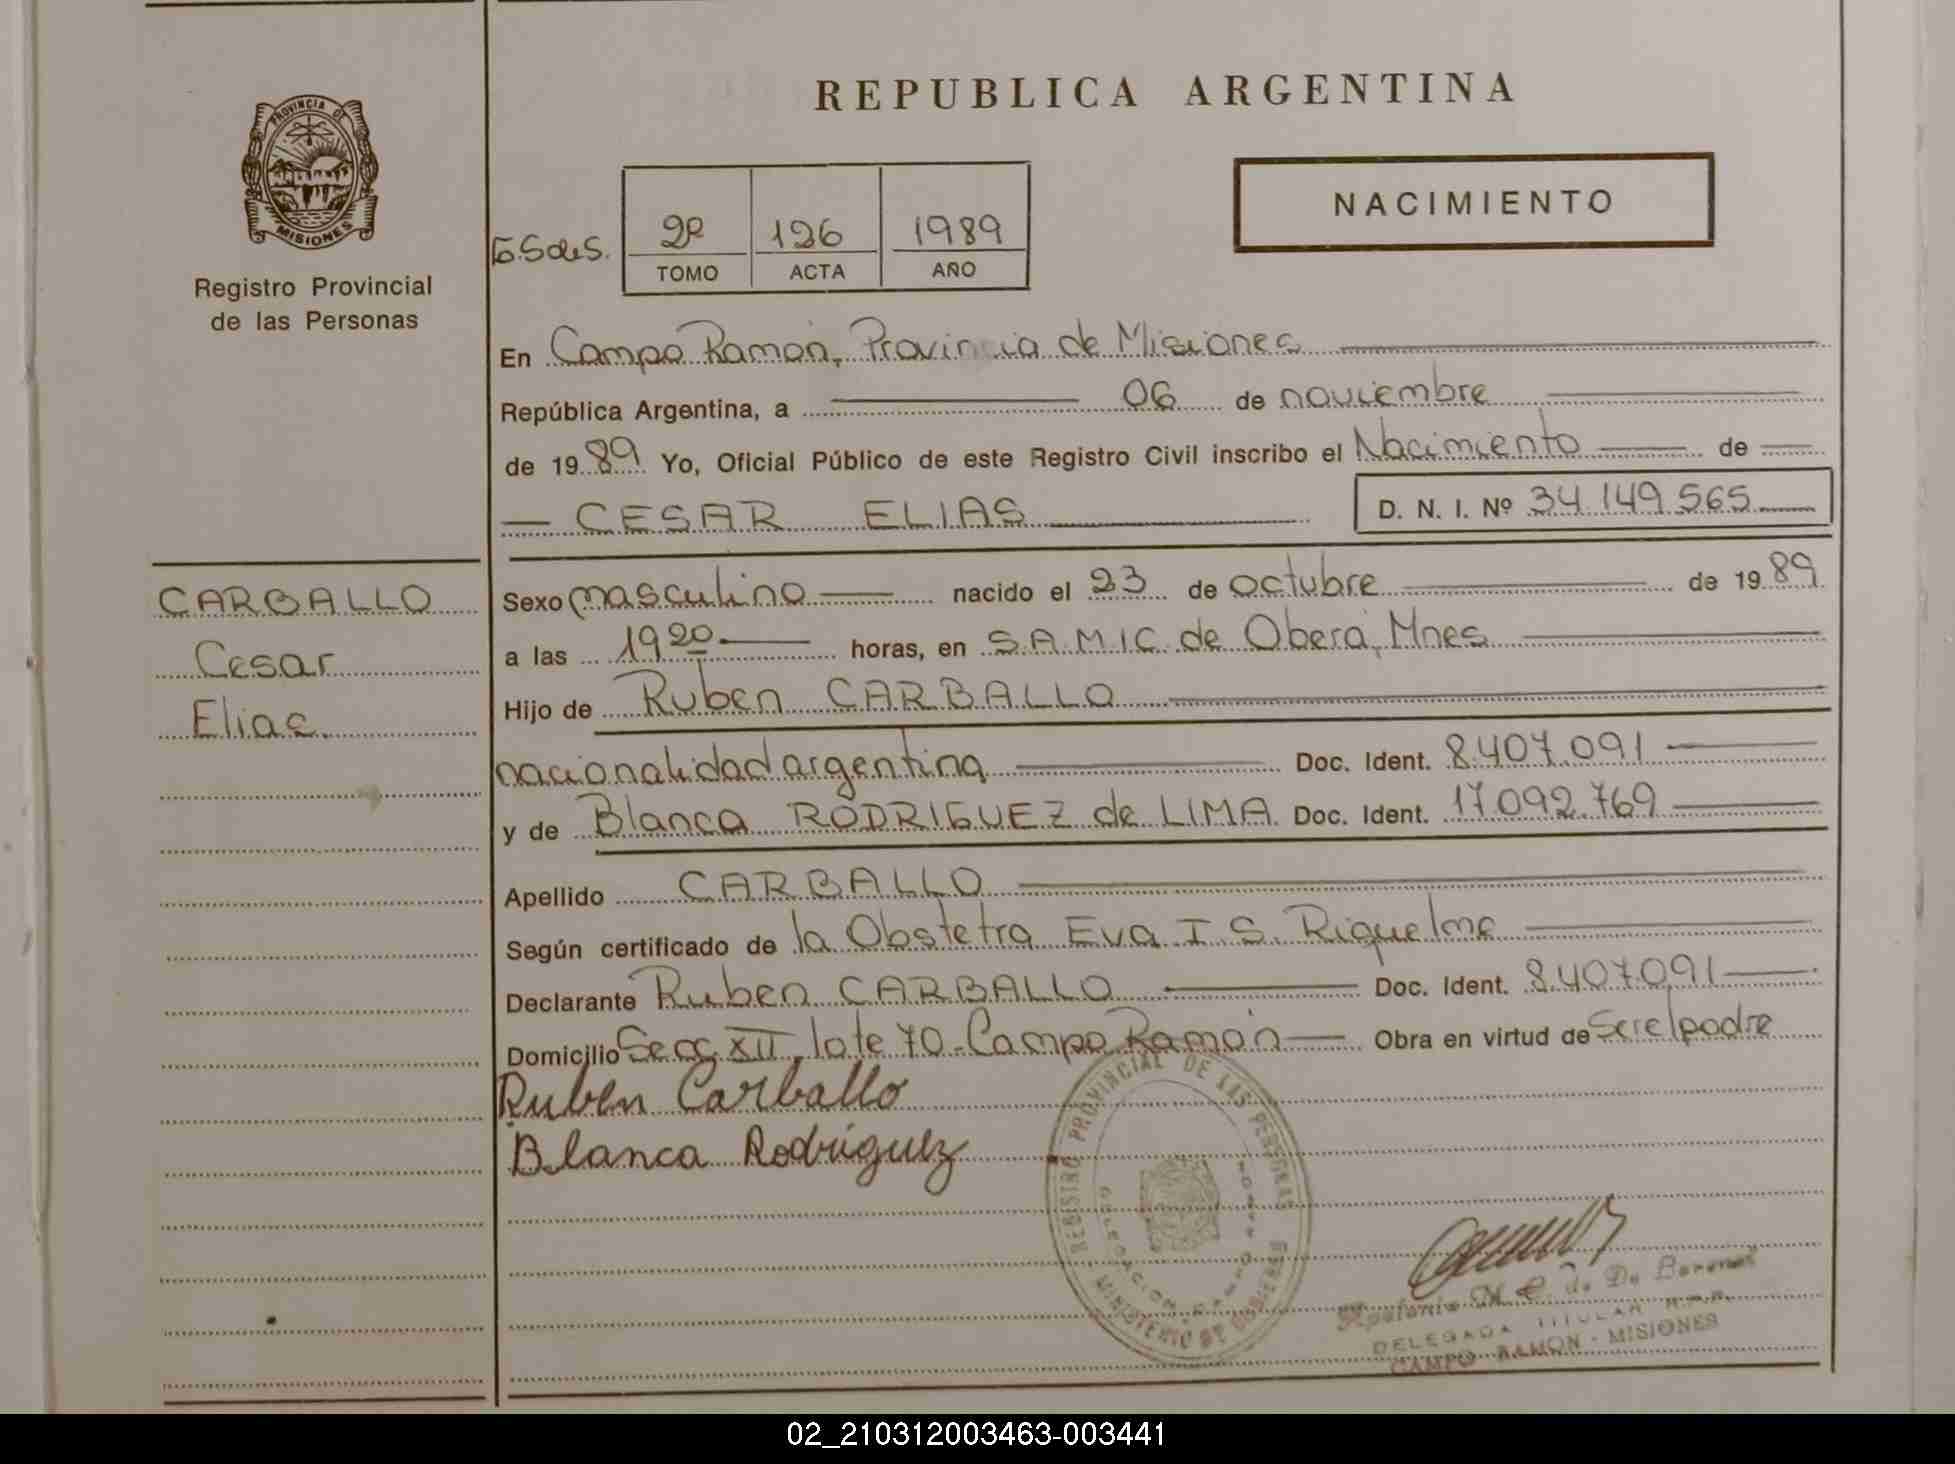 REPUBLICA ARGENTINA
PROVINCIA DE
MISIONES
Registro Provincial
de las Personas
NACIMIENTO
2º 126 1989
TOMO ACTA AÑO
En Campo Ramón, Provincia de Misiones
República Argentina, a 06 de noviembre
de 1989 Yo, Oficial Público de este Registro Civil inscribo el Nacimiento de
CESAR ELIAS D. N. I. Nº 34.149.565
CARBALLO
Cesar
Elias.
Sexo masculino nacido el 23 de octubre de 1989
a las 19 20 horas, en S.A.M.I.C. de Oberá, Mnes
Hijo de Ruben CARBALLO
nacionalidad argentina Doc. Ident. 8.407.091
y de Blanca RODRIGUEZ de LIMA Doc. Ident. 17.092.769
Apellido CARBALLO
Según certificado de la Obstetra Eva I S. Riquelme
Declarante Ruben CARBALLO Doc. Ident. 8.407.091
Domicilio Secc XII, lote 70 - Campo Ramón Obra en virtud de Ser el padre
Ruben Carballo
Blanca Rodriguez
REGISTRO PROVINCIAL DE LAS PERSONAS
MINISTERIO DE GOBIERNO
DELEGACION
DELEGADA TITULAR
CAMPO RAMON - MISIONES
02_210312003463-003441